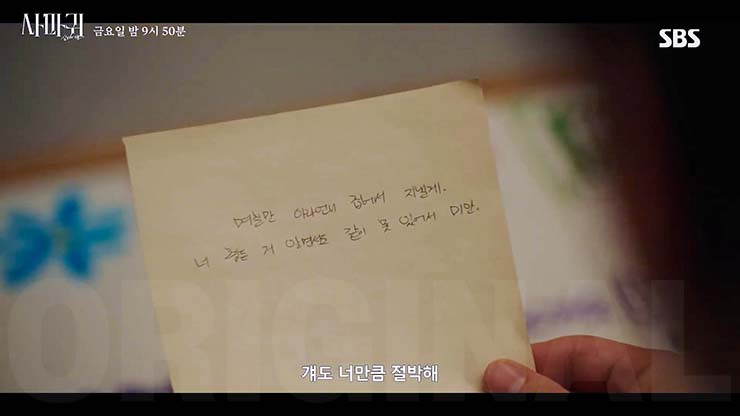 사마귀 금요일 밤 9시 50분
SBS
며칠만 아라언니 집에서 지낼게.
너 힘든 거 알면서도 같이 못 있어서 미안.
ORIGINAL
걔도 너만큼 절박해